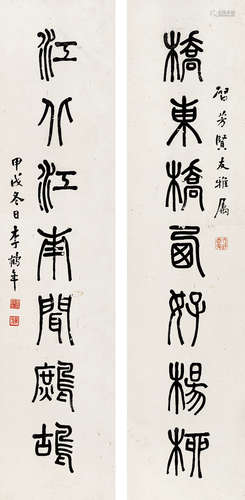 啓芳賢友雅属
橋東橋西好楊柳
江北江南聞鷓鴣
甲戌冬日李鶴年